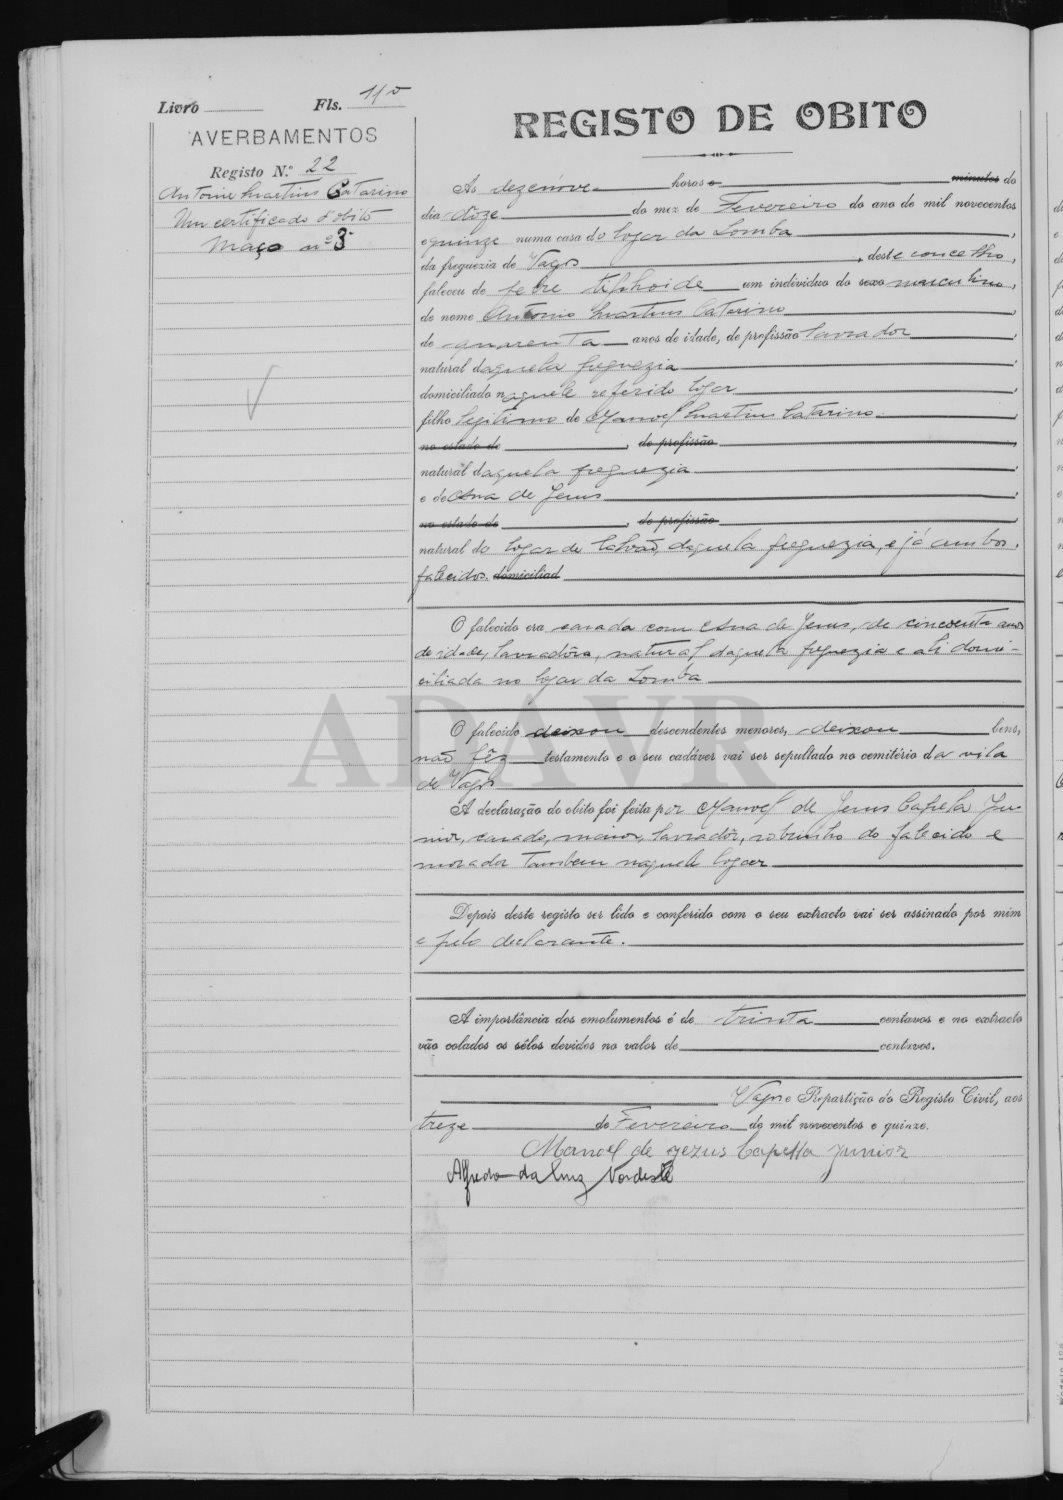 Livro Fls. 11 v
AVERBAMENTOS
Registo N.º 22
Antonio Martins Catarino
Um certificado d'obito
Maço nº 3
REGISTO DE OBITO
Ás dezenove horas e minutos do
dia doze do mez de Fevereiro do ano de mil novecentos
e quinze numa casa do logar da Lomba,
da freguezia de Vagos, deste concelho,
faleceu de febre tifhoide um individuo do sexo masculino,
de nome Antonio Martins Catarino,
de quarenta anos de idade, de profissão lavrador,
natural daquela freguezia,
domiciliado naquele referido logar,
filho legitimo de Manoel Martins Catarino,
no estado de, de profissão,
natural daquela freguezia,
e de Ana de Jesus,
no estado de, de profissão,
natural do logar de daquela freguezia, e já ambos
falecidos. domiciliad
O falecido era casado com Ana de Jesus, de cincoenta anos
de idade, lavradôra, natural daquela freguezia e ali domi-
ciliada no logar da Lomba
O falecido deixou descendentes menores, deixou bens,
não fêz testamento e o seu cadáver vai ser sepultado no cemitério da vila
de Vagos
A declaração do obito foi feita por Manoel de Jesus Capela Ju-
nior, casado, maior, lavradôr, sobrinho do falecido e
morador tambem naquele logar
Depois deste registo ser lido e conferido com o seu extracto vai ser assinado por mim
e pelo declarante.
A importância dos emolumentos é de trinta centavos e no extracto
vão colados os sêlos devidos no valor de centavos.
Vagos e Repartição do Registo Civil, aos
treze de Fevereiro de mil novecentos e quinze.
Manoel de Jezus Capella Junior
Alfredo da Luz Nordeste
ADAVR